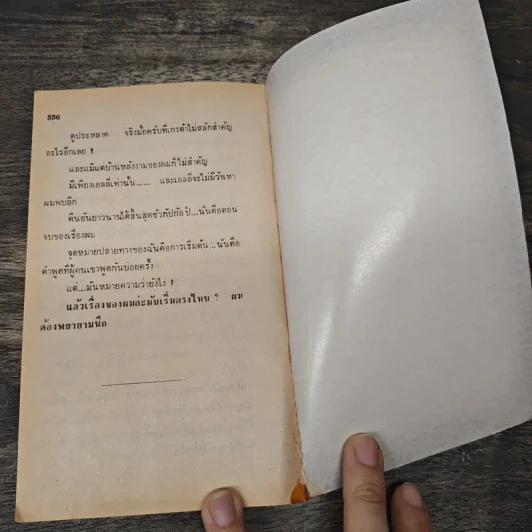 336
ดูประหลาด จริงมั้ยครับที่เกรต้าไม่สลักสำคัญ
อะไรอีกเลย !
และแม้แต่บ้านหลังงามของผมก็ไม่สำคัญ
มีเพียงเอลลี่เท่านั้น...... และเอลลี่จะไม่มีวันหา
ผมพบอีก
คืนอันยาวนานได้สิ้นสุดชั่วกัปกัลป์...นั่นคือตอน
จบของเรื่องผม
จุดหมายปลายทางของฉันคือการเริ่มต้น...นั่นคือ
คำพูดที่ผู้คนเขาพูดกันบ่อยครั้ง
แต่...มันหมายความว่ายังไง !
แล้วเรื่องของผมล่ะมันเริ่มตรงไหน ? ผม
ต้องพยายามนึก